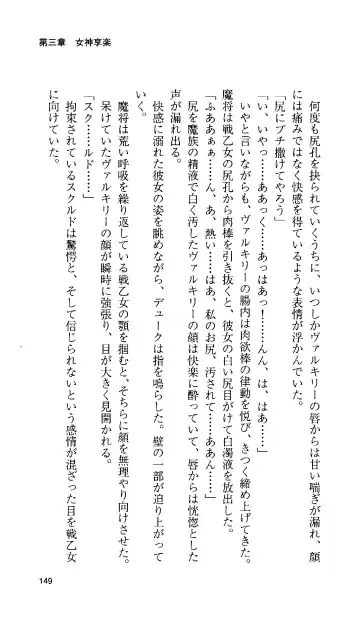 第三章　女神享楽
何度も尻孔を抉られていくうちに、いつしかヴァルキリーの唇からは甘い喘ぎが漏れ、顔
には痛みではなく快感を得ているような表情が浮かんでいた。
「尻にブチ撒けてやろう」
「い、いやっ……ああっく……あっはあっ！……んん、は、はあ……」
いやと言いながらも、ヴァルキリーの腸内は肉欲棒の律動を悦び、きつく締め上げてきた。
魔将は戦乙女の尻孔から肉棒を引き抜くと、彼女の白い尻目がけて白濁液を放出した。
「ふああぁぁ……ん、あ、熱い……はあ、私のお尻、汚されて……ああん……」
尻を魔族の精液で白く汚したヴァルキリーの顔は快楽に酔っていて、唇からは恍惚とした
声が漏れ出る。
快感に溺れた彼女の姿を眺めながら、デュークは指を鳴らした。壁の一部が迫り上がって
いく。
魔将は荒い呼吸を繰り返している戦乙女の顎を掴むと、そちらに顔を無理やり向けさせた。
呆けていたヴァルキリーの顔が瞬時に強張り、目が大きく見開かれる。
「スク……ルド……」
拘束されているスクルドは驚愕と、そして信じられないという感情が混ざった目を戦乙女
に向けていた。
149